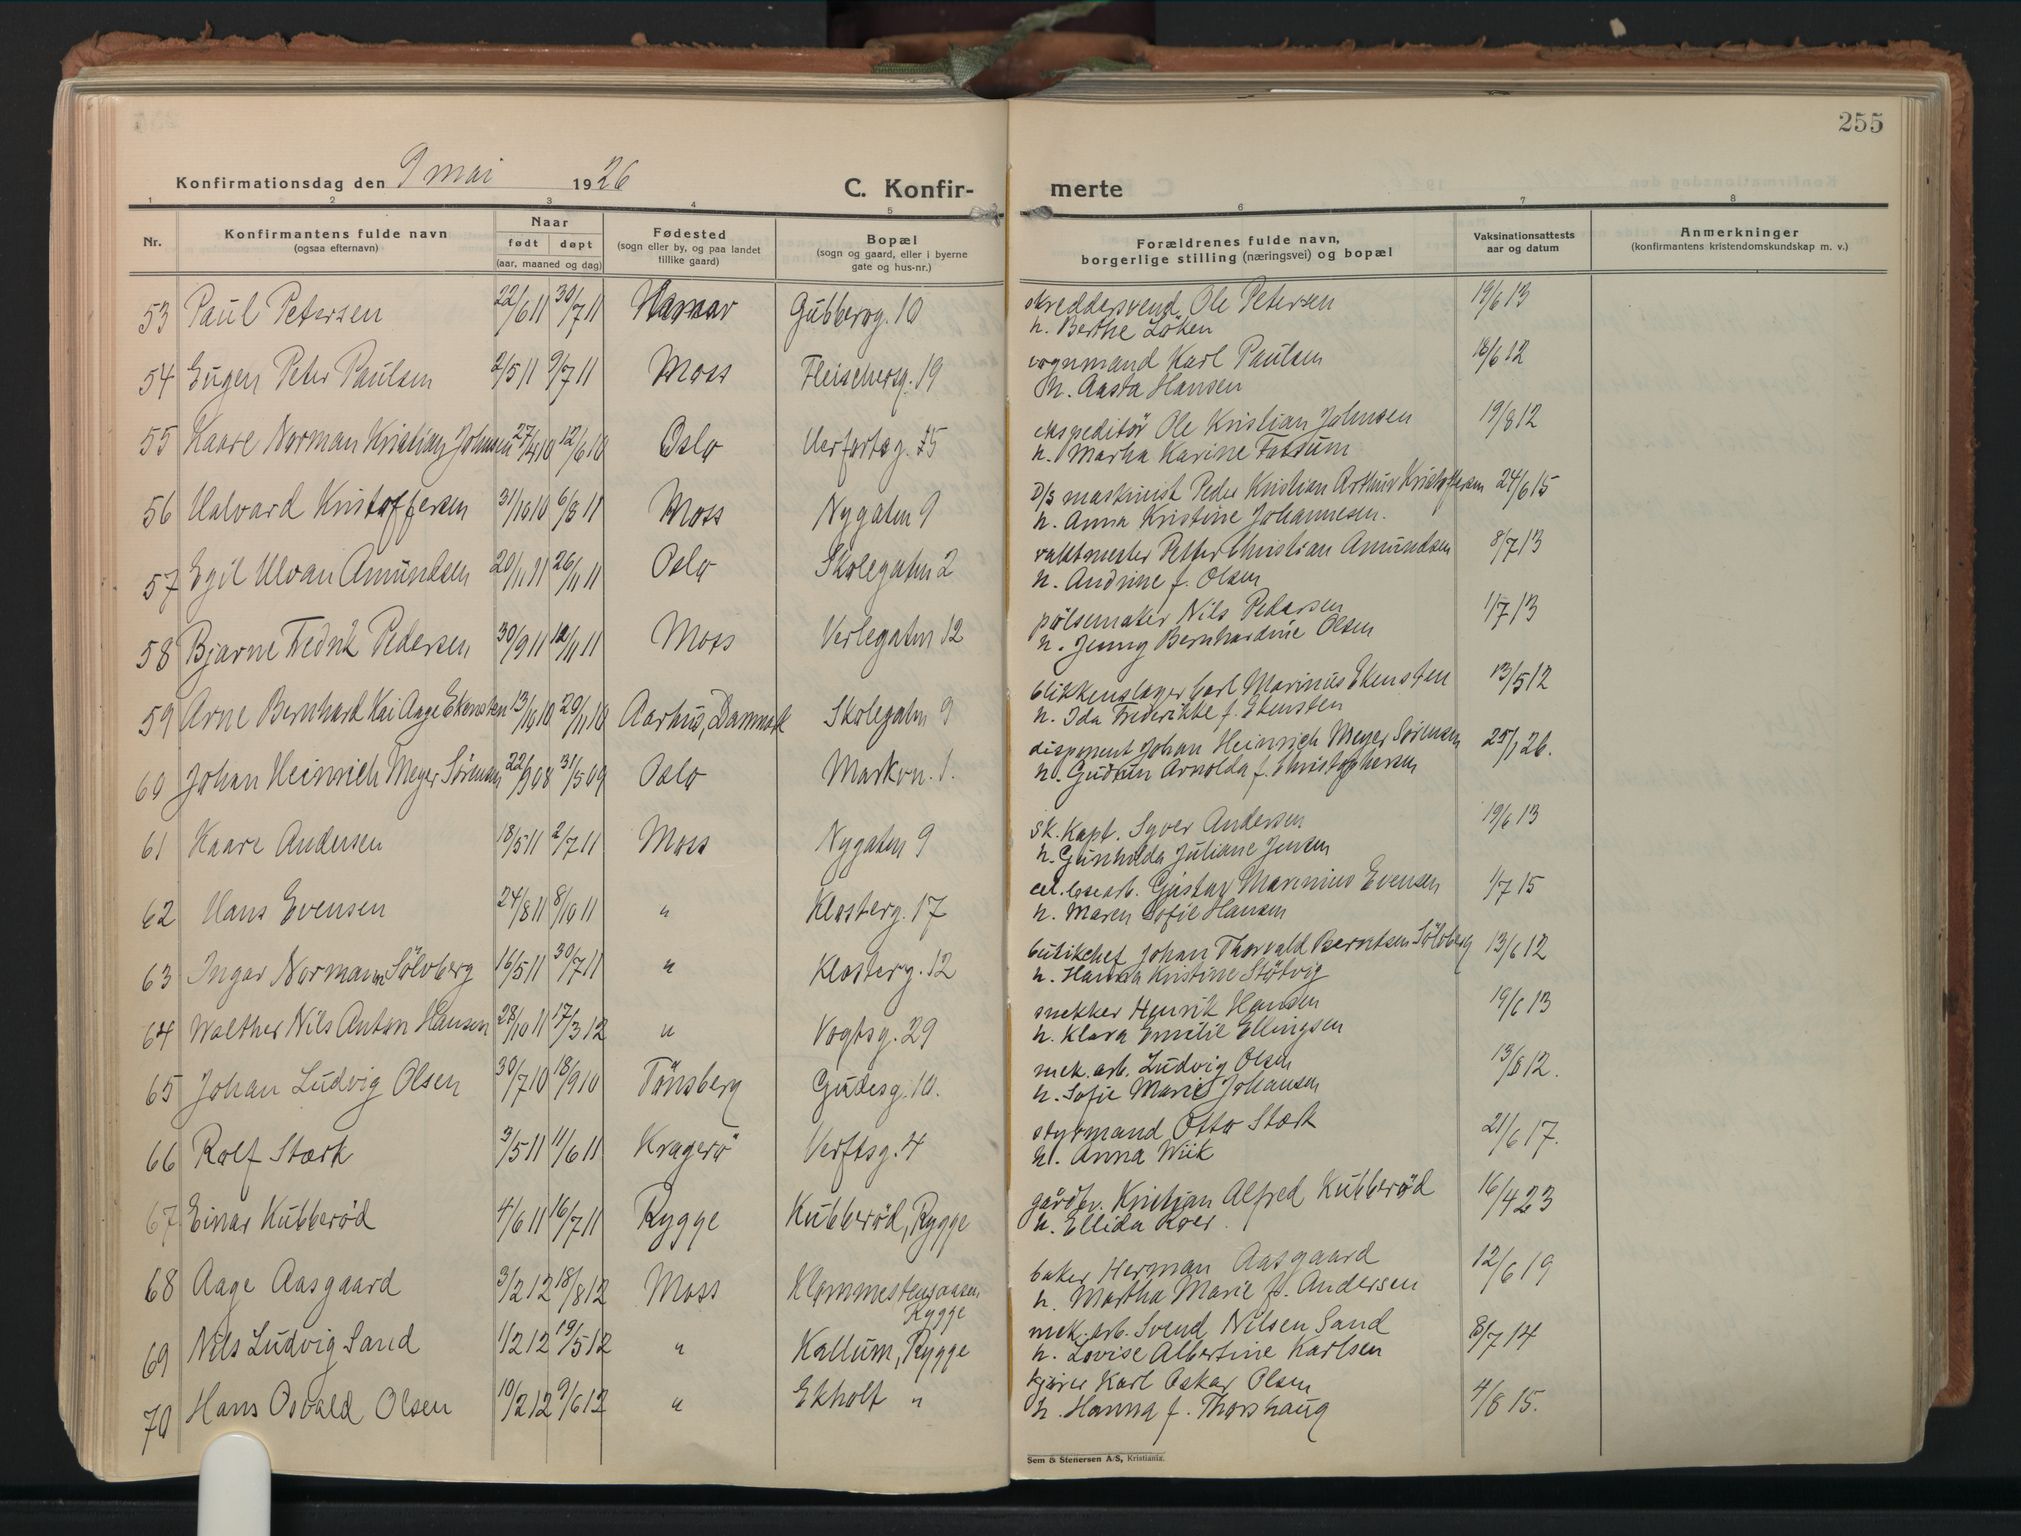 255
Konfirmationsdag den 9 mai 1926
C. Konfir- merte
1 2 3 4 5 6 7 8
Nr. Konfirmantens fulde navn (ogsaa efternavn) Naar født døpt (aar, maaned og dag) Fødested (sogn eller by, og paa landet tillike gaard) Bopæl (sogn og gaard, eller i byerne gate og hus-nr.) Forældrenes fulde navn, borgerlige stilling (næringsvei) og bopæl Vaksinationsattests aar og datum Anmerkninger (konfirmantens kristendomskundskap m. v.)
53 Paul Petersen 22/6 11 30/7 11 Hamar Gubberog. 10 skreddersvend Ole Petersen 19/6 13
h. Berthe Löken
54 Eugen Peter Paulsen 2/5 11 9/7 11 Moss Fleischersg. 19 vognmand Karl Paulsen 18/6 12
h. Aasta Hansen
55 Kaare Norman Kristian Johnsen 27/4 10 12/6 10 Oslo Verftsg. 15 ekspeditör Ole Kristian Johnsen 19/8 12
h. Martha Karine Fossum
56 Halvard Kristoffersen 31/10 10 6/8 11 Moss Nygaten 9 D/S maskinist Peder Kristian Arthur Kristoffersen 24/6 15
h. Anna Kristine Johannesen.
57 Egil Ulvan Amundsen 20/11 11 26/11 11 Oslo Skolegaten 2 vaktmester Petter Christian Amundsen 8/7 13
h. Andrine f. Olsen
58 Bjarne Fredrik Pedersen 30/9 11 12/11 11 Moss Verlegaten 12 pølsemaker Nils Pedersen 1/7 13
h. Jenny Bernhardine Olsen
59 Arne Bernhard Kai Aage Ekensten 13/10 10 20/11 10 Aarhus, Danmark Skolegaten 9 blikkenslager Carl Marinus Ekensten 13/5 12
h. Ida Frederikke f. Ekensten
60 Johan Heinrich Meyer Sörensen 22/9 08 31/5 09 Oslo Markvn. 1. disponent Johan Heinrich Meyer Sørensen 25/1 26.
h. Gudrun Arnolda f. Christophersen
61 Kaare Andersen 18/5 11 2/7 11 Moss Nygaten 9 sk. kapt. Syver Andersen 19/6 13
h. Gunhilda Juliane Jensen
62 Hans Evensen 24/8 11 8/10 11 " Klosterg. 17 cel. losearb. Gustav Marinius Evensen 1/7 15
h. Maren Sofie Hansen
63 Ingar Normann Sölvberg 16/5 11 30/7 11 " Klosterg. 12 butikchef Johan Thorvald Berntsen Sölvberg 13/6 12
h. Hanna Kristine Støtvig
64 Walther Nils Anton Hansen 28/10 11 17/3 12 " Vogtsg. 29 snekker Henrik Hansen 19/6 13
h. Klara Emilie Ellingsen
65 Johan Ludvig Olsen 30/7 10 18/9 10 Tönsberg Gudesg. 10. mek. arb. Ludvig Olsen 13/8 12.
h. Sofie Marie Johansen
66 Rolf Stærk 3/5 11 11/6 11 Kragerö Verftsg. 4 styrmand Otto Stærk 21/6 17.
h. Anna Wiik
67 Einar Kubberød 4/6 11 16/7 11 Rygge Kubberød, Rygge gårdbr. Kristian Alfred Kubberød 16/4 23
h. Ellida Roer.
68 Aage Aasgaard 3/2 12 18/8 12 Moss Klommestensaasen, Rygge baker Herman Aasgaard 12/6 19
h. Martha Marie f. Andersen
69 Nils Ludvig Sand 1/2 12 19/5 12 " Kallum, Rygge mek. arb. Svend Nilsen Sand 8/7 14
h. Lovise Albertine Karlsen
70 Hans Osvald Olsen 10/2 12 9/6 12 " Ekholt " kjører Karl Oskar Olsen 4/8 15.
h. Hanna f. Thorshaug
Sem & Stenersen A/S, Kristiania.